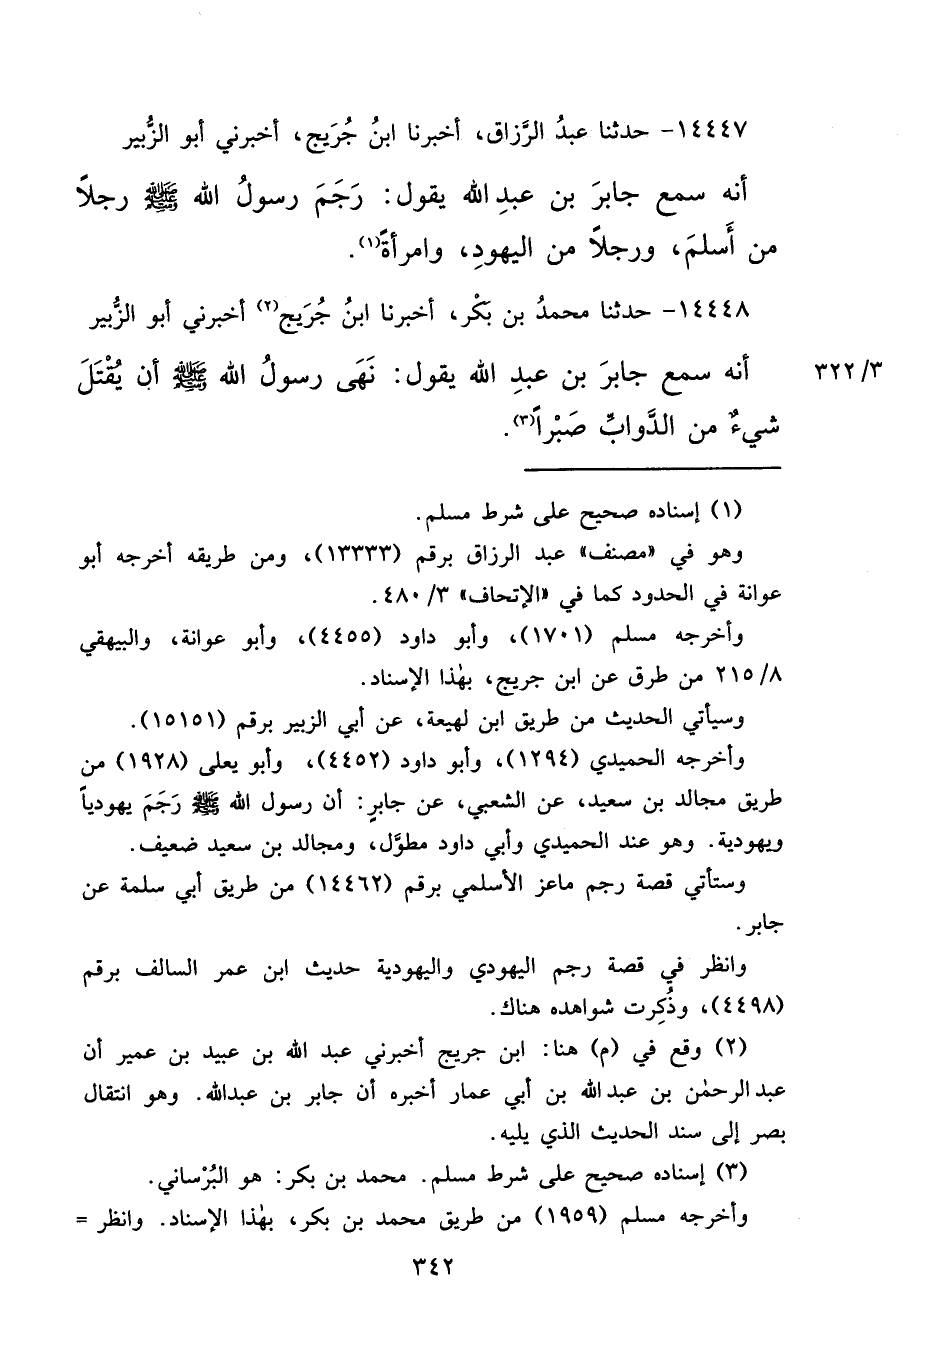 ١٤٤٤٧- حدثنا عبدُ الرَّزاق، أخبرنا ابنُ جُرَيج، أخبرني أبو الزُّبير
أنه سمع جابرَ بن عبدِ الله يقول: رَجَمَ رسولُ الله ﷺ رجلاً
من أَسلمَ، ورجلاً من اليهودِ، وامرأةً(١).
١٤٤٤٨- حدثنا محمدُ بن بَكْر، أخبرنا ابنُ جُرَيج(٢) أخبرني أبو الزُّبير
أنه سمع جابرَ بن عبدِ الله يقول: نَهَى رسولُ الله ﷺ أن يُقْتَلَ
٣٢٢/٣
شيءٌ من الدَّوابِّ صَبْراً(٣).
(١) إسناده صحيح على شرط مسلم.
وهو في «مصنف» عبد الرزاق برقم (١٣٣٣٣)، ومن طريقه أخرجه أبو
عوانة في الحدود كما في «الإتحاف» ٤٨٠/٣.
وأخرجه مسلم (١٧٠١)، وأبو داود (٤٤٥٥)، وأبو عوانة، والبيهقي
٢١٥/٨ من طرق عن ابن جريج، بهٰذا الإسناد.
وسيأتي الحديث من طريق ابن لهيعة، عن أبي الزبير برقم (١٥١٥١).
وأخرجه الحميدي (١٢٩٤)، وأبو داود (٤٤٥٢)، وأبو يعلى (١٩٢٨) من
طريق مجالد بن سعيد، عن الشعبي، عن جابرٍ: أن رسول الله ﷺ رَجَمَ يهودياً
ويهودية. وهو عند الحميدي وأبي داود مطوَّل، ومجالد بن سعيد ضعيف.
وستأتي قصة رجم ماعز الأسلمي برقم (١٤٤٦٢) من طريق أبي سلمة عن
جابر.
وانظر في قصة رجم اليهودي واليهودية حديث ابن عمر السالف برقم
(٤٤٩٨)، وذُكِرت شواهده هناك.
(٢) وقع في (م) هنا: ابن جريج أخبرني عبد الله بن عبيد بن عمير أن
عبد الرحمٰن بن عبد الله بن أبي عمار أخبره أن جابر بن عبدالله. وهو انتقال
بصر إلى سند الحديث الذي يليه.
(٣) إسناده صحيح على شرط مسلم. محمد بن بكر: هو البُرْساني.
وأخرجه مسلم (١٩٥٩) من طريق محمد بن بكر، بهٰذا الإسناد. وانظر =
٣٤٢